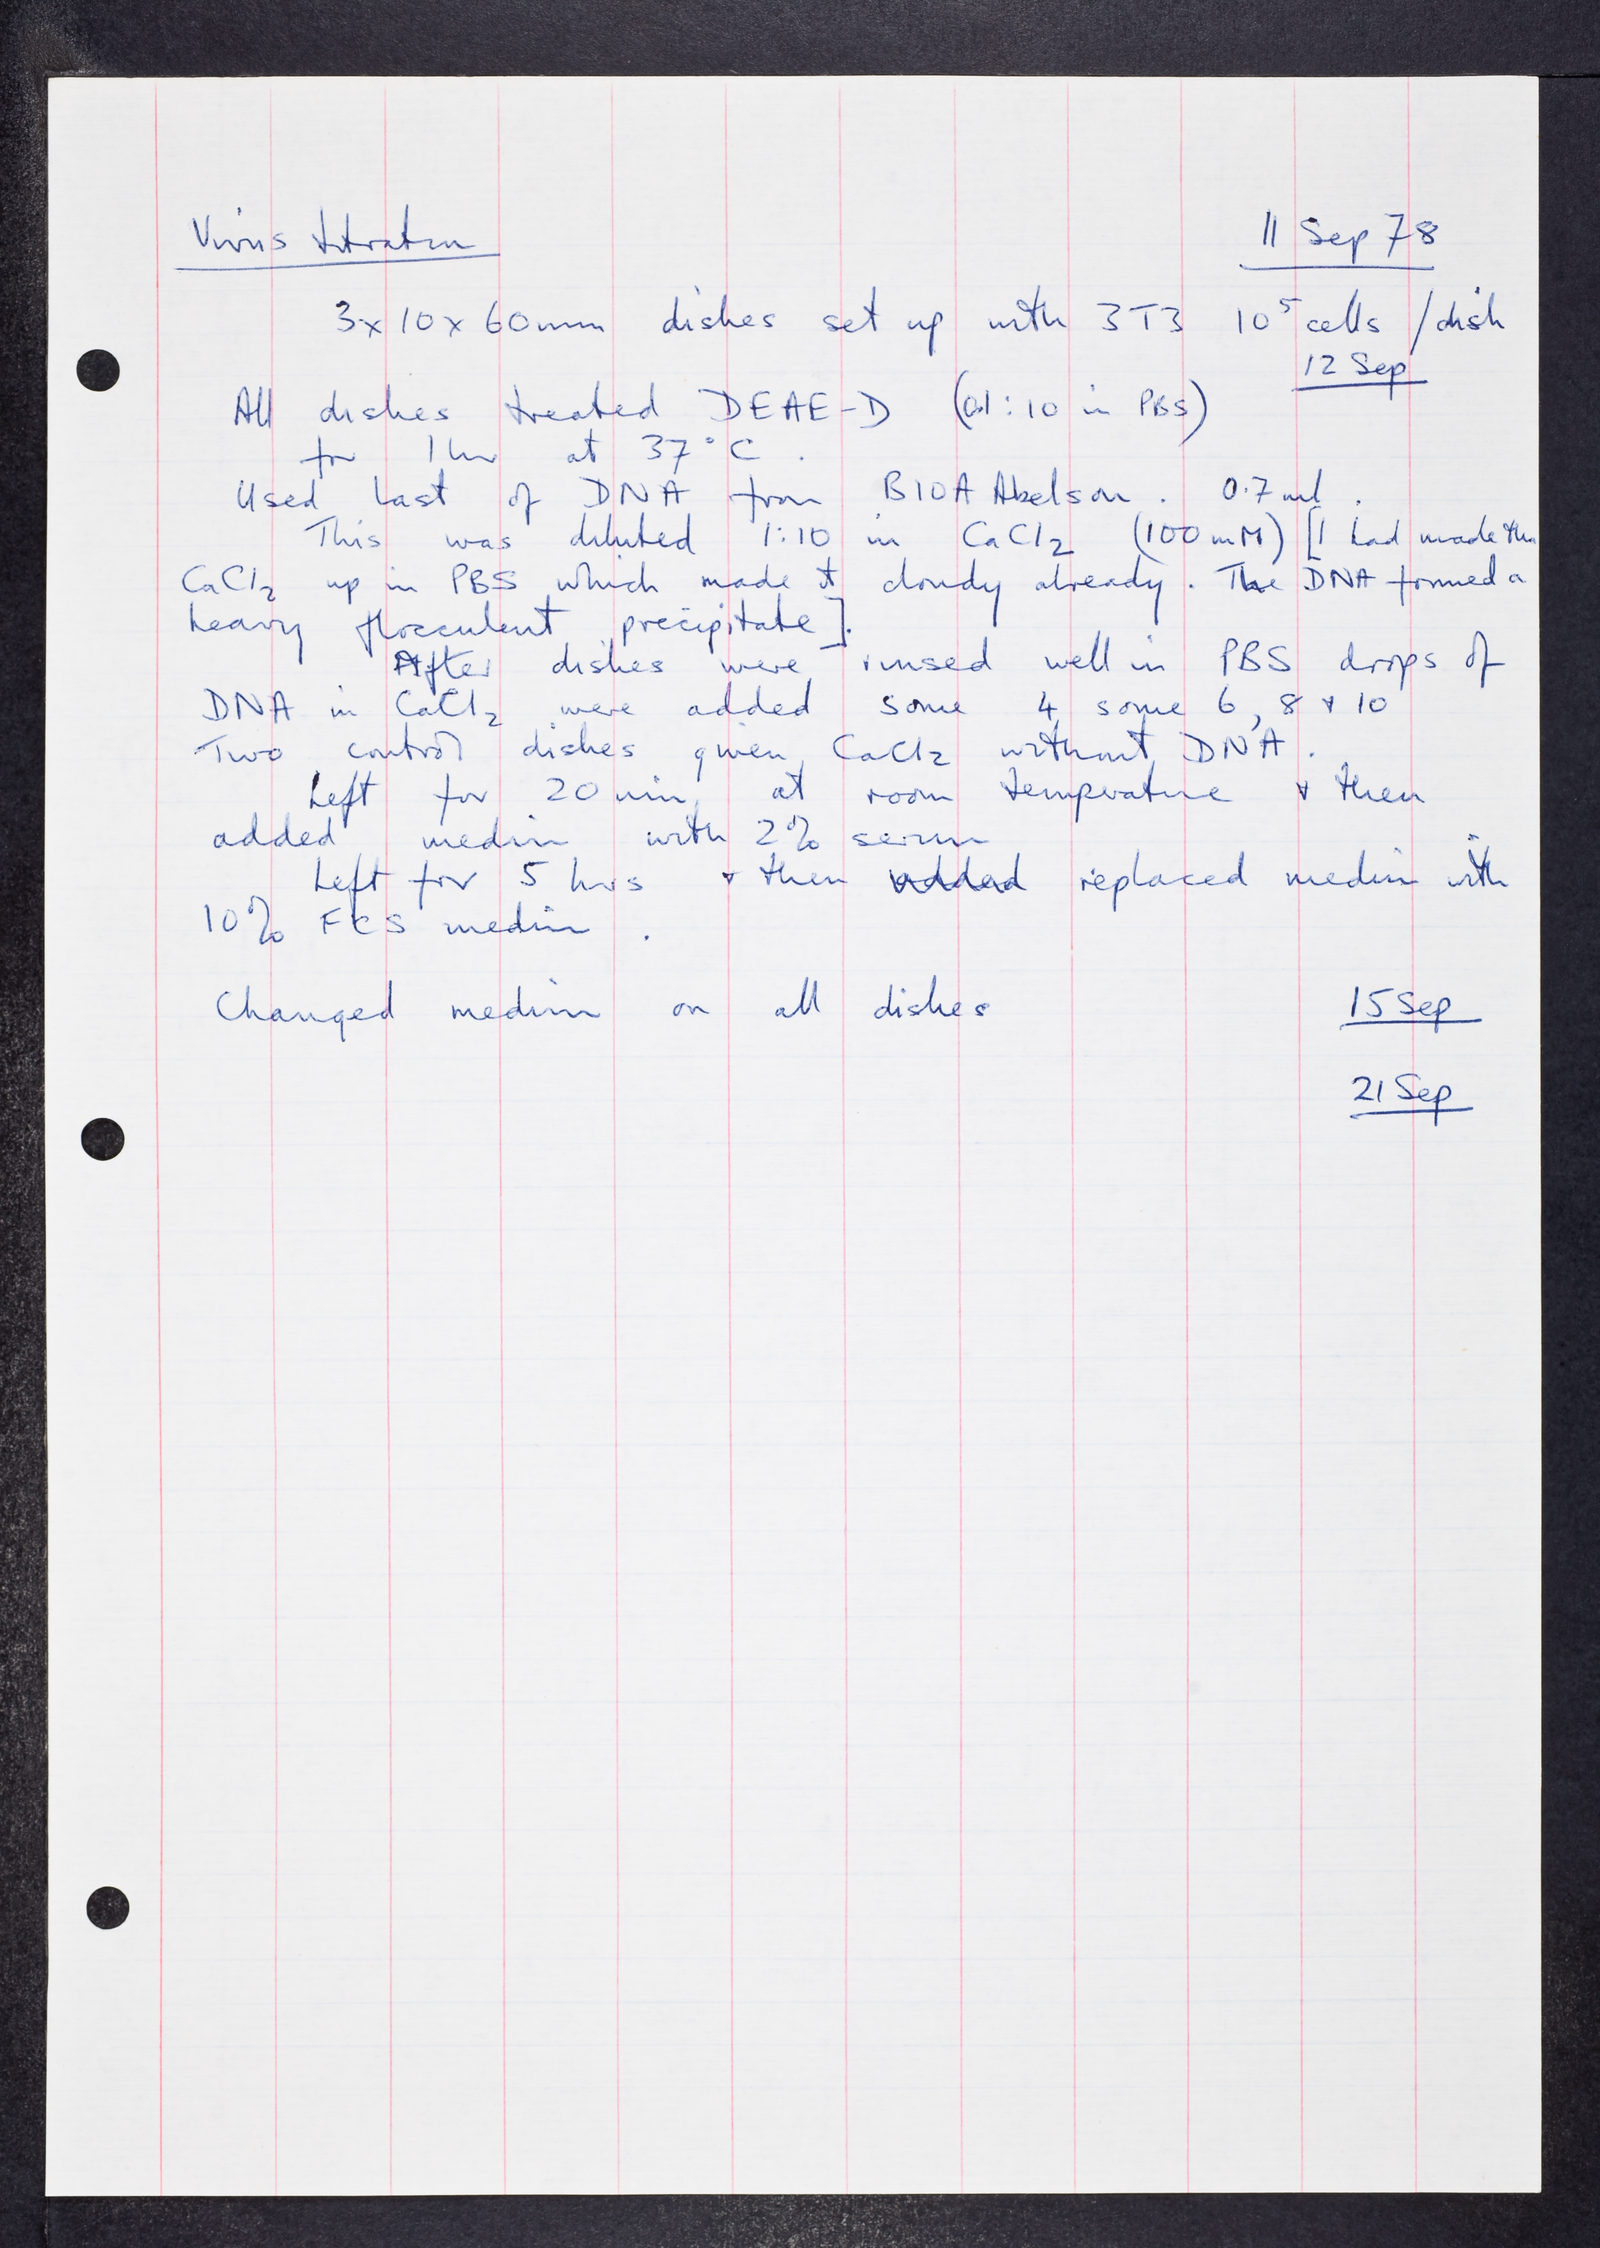 Virus titration 11 Sep 78
3x10x60mm dishes set up with 3T3 10⁵ cells /dish
12 Sep
All dishes treated DEAE-D (0.1:10 in PBS)
for 1hr at 37°C.
Used last of DNA from B10A Abelson. 0.7 ml.
This was diluted 1:10 in CaCl₂ (100mM) [I had made the
CaCl₂ up in PBS which made it cloudy already. The DNA formed a
heavy flocculent precipitate].
After dishes were rinsed well in PBS drops of
DNA in CaCl₂ were added some 4, some 6, 8 + 10
Two control dishes given CaCl₂ without DNA.
Left for 20 min at room temperature + then
added medium with 2% serum
Left for 5 hrs + then added replaced medium with
10% FCS medium.
Changed medium on all dishes 15 Sep
21 Sep